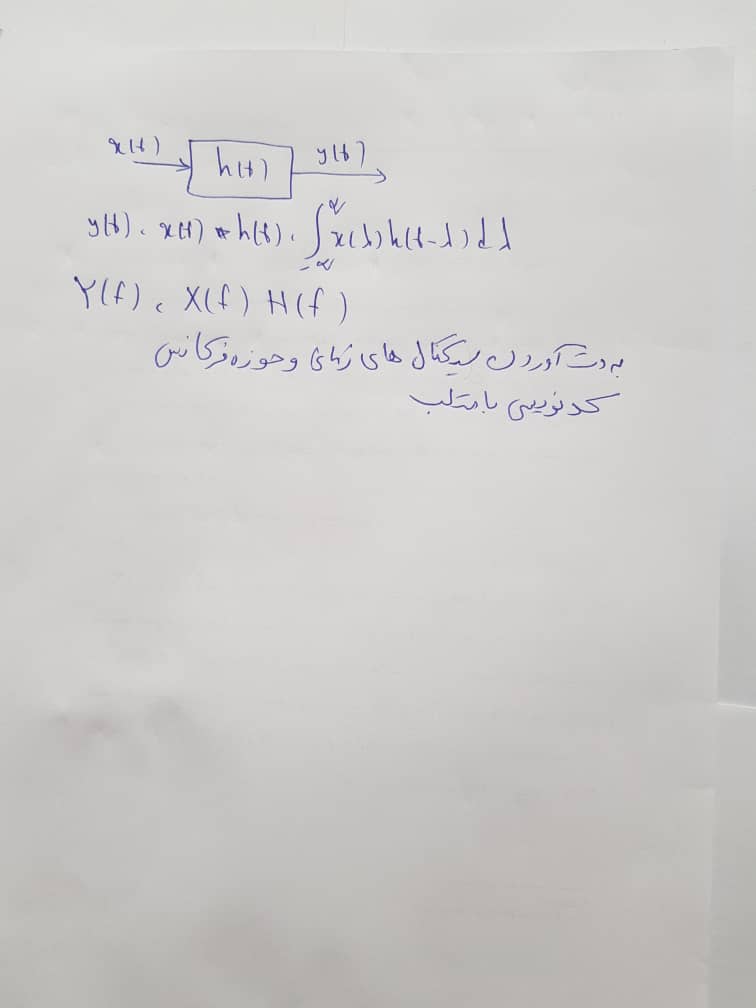 x(t) h(t) y(t)
y(t) = x(t) * h(t) = ∫_{-∞}^{∞} x(λ) h(t-λ) dλ
Y(f) = X(f) H(f)
به دست آوردن سیگنال های زمانی و حوزه فرکانس
کد نویسی با متلب